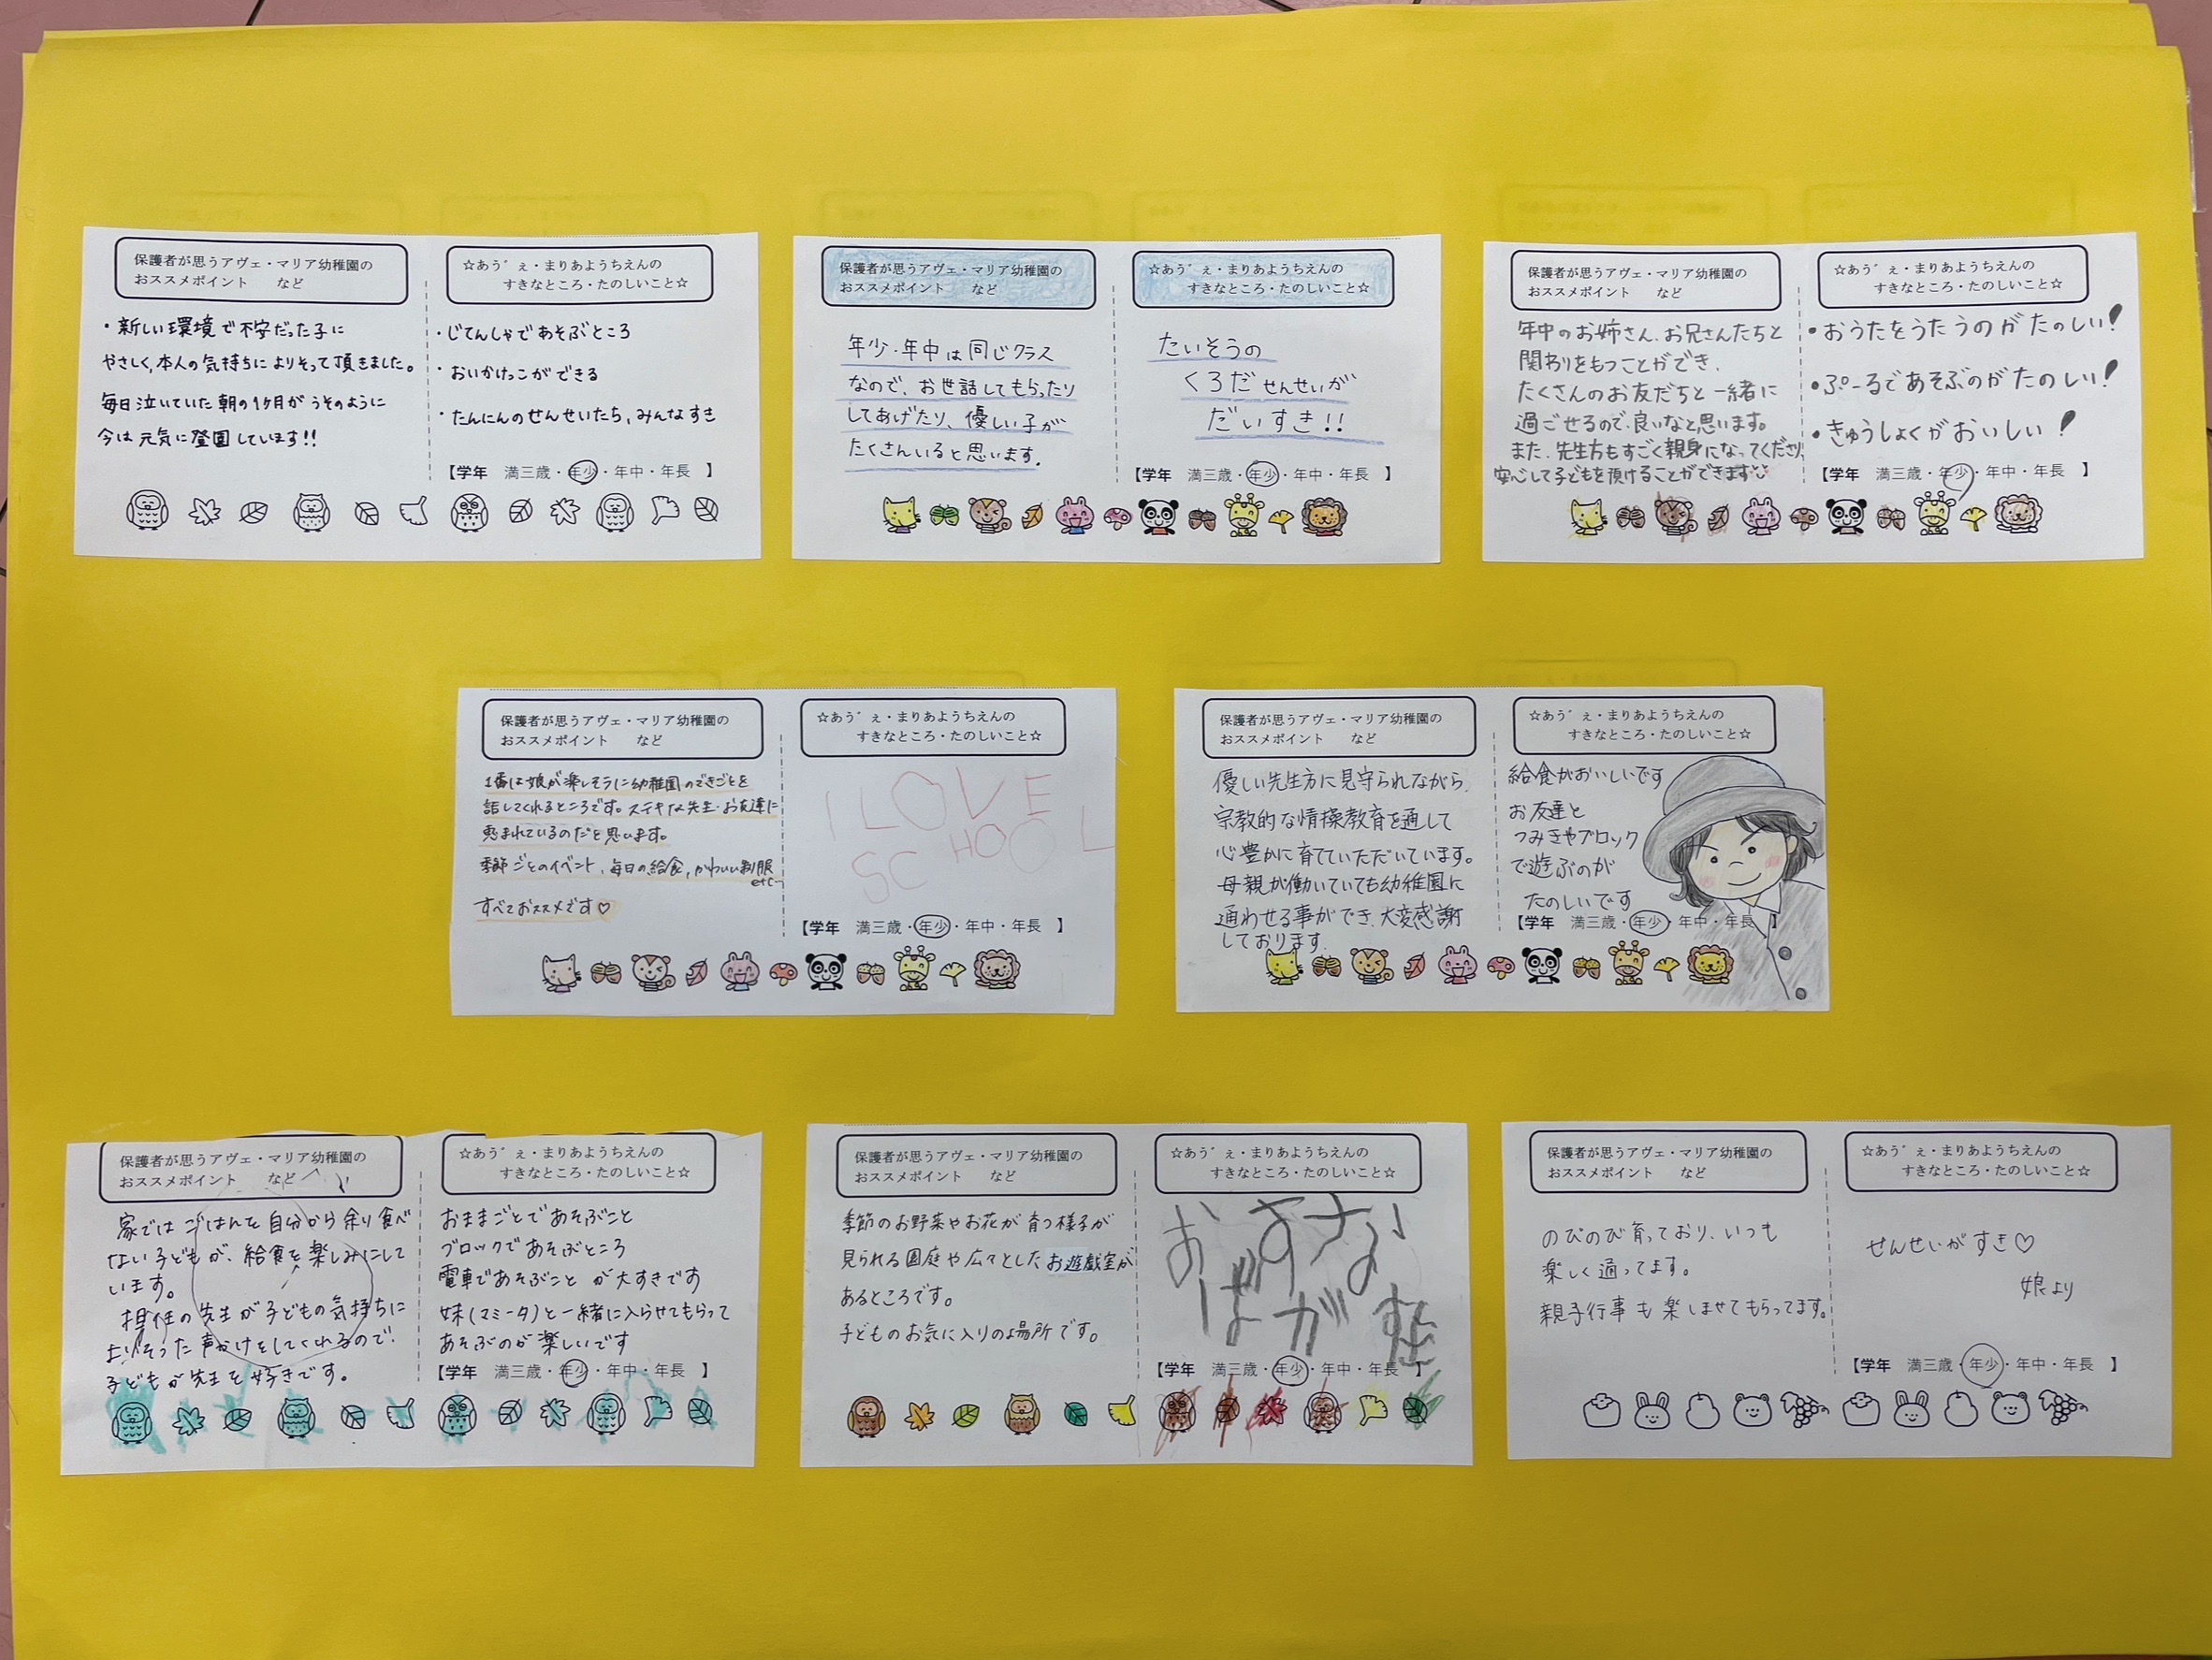 保護者が思うアヴェ・マリア幼稚園の
おススメポイント　など
・新しい環境で不安だった子に
やさしく,本人の気持ちによりそって頂きました。
毎日泣いていた朝の1ヶ月がうそのように
今は元気に登園しています!!
☆あう゛ぇ・まりあようちえんの
すきなところ・たのしいこと☆
・じてんしゃであそぶところ
・おいかけっこができる
・たんにんのせんせいたち,みんなすき
【学年　満三歳・年少・年中・年長　】
保護者が思うアヴェ・マリア幼稚園の
おススメポイント　など
年少・年中は同じクラス
なので、お世話してもらったり
してあげたり、優しい子が
たくさんいると思います.
☆あう゛ぇ・まりあようちえんの
すきなところ・たのしいこと☆
たいそうの
くろだせんせいが
だいすき!!
【学年　満三歳・年少・年中・年長　】
保護者が思うアヴェ・マリア幼稚園の
おススメポイント　など
年中のお姉さん、お兄さんたちと
関わりをもつことができ、
たくさんのお友だちと一緒に
過ごせるので、良いなと思います。
また、先生方もすごく親身になってくださり
安心して子どもを預けることができます
☆あう゛ぇ・まりあようちえんの
すきなところ・たのしいこと☆
・おうたをうたうのがたのしい!
・ぷーるであそぶのがたのしい!
・きゅうしょくがおいしい!
【学年　満三歳・年少・年中・年長　】
保護者が思うアヴェ・マリア幼稚園の
おススメポイント　など
1番は娘が楽しそうに幼稚園のできごとを
話してくれるところです。ステキな先生・お友達に
恵まれているのだと思います。
季節ごとのイベント、毎日の給食,かわいい制服
etc
すべておススメです♡
☆あう゛ぇ・まりあようちえんの
すきなところ・たのしいこと☆
I LOVE
SCHOOL
【学年　満三歳・年少・年中・年長　】
保護者が思うアヴェ・マリア幼稚園の
おススメポイント　など
優しい先生方に見守られながら、
宗教的な情操教育を通して
心豊かに育てていただいています。
母親が働いていても幼稚園に
通わせる事ができ、大変感謝
しております.
☆あう゛ぇ・まりあようちえんの
すきなところ・たのしいこと☆
給食がおいしいです
お友達と
つみきやブロック
で遊ぶのが
たのしいです
【学年　満三歳・年少・年中・年長　】
保護者が思うアヴェ・マリア幼稚園の
おススメポイント　など
家ではごはんを自分から余り食べ
ない子どもが、給食を楽しみにして
います。
担任の先生が子どもの気持ちに
よりそった声かけをしてくれるので、
子どもが先生を好きです。
☆あう゛ぇ・まりあようちえんの
すきなところ・たのしいこと☆
おままごとであそぶこと
ブロックであそぶところ
電車であそぶこと が大すきです
妹(マミータ)と一緒に入らせてもらって
あそぶのが楽しいです
【学年　満三歳・年少・年中・年長　】
保護者が思うアヴェ・マリア幼稚園の
おススメポイント　など
季節のお野菜やお花が育つ様子が
見られる園庭や広々としたお遊戯室が
あるところです。
子どものお気に入りの場所です。
☆あう゛ぇ・まりあようちえんの
すきなところ・たのしいこと☆
【学年　満三歳・年少・年中・年長　】
保護者が思うアヴェ・マリア幼稚園の
おススメポイント　など
のびのび育っており、いつも
楽しく通ってます。
親子行事も楽しませてもらってます。
☆あう゛ぇ・まりあようちえんの
すきなところ・たのしいこと☆
せんせいがすき♡
娘より
【学年　満三歳・年少・年中・年長　】